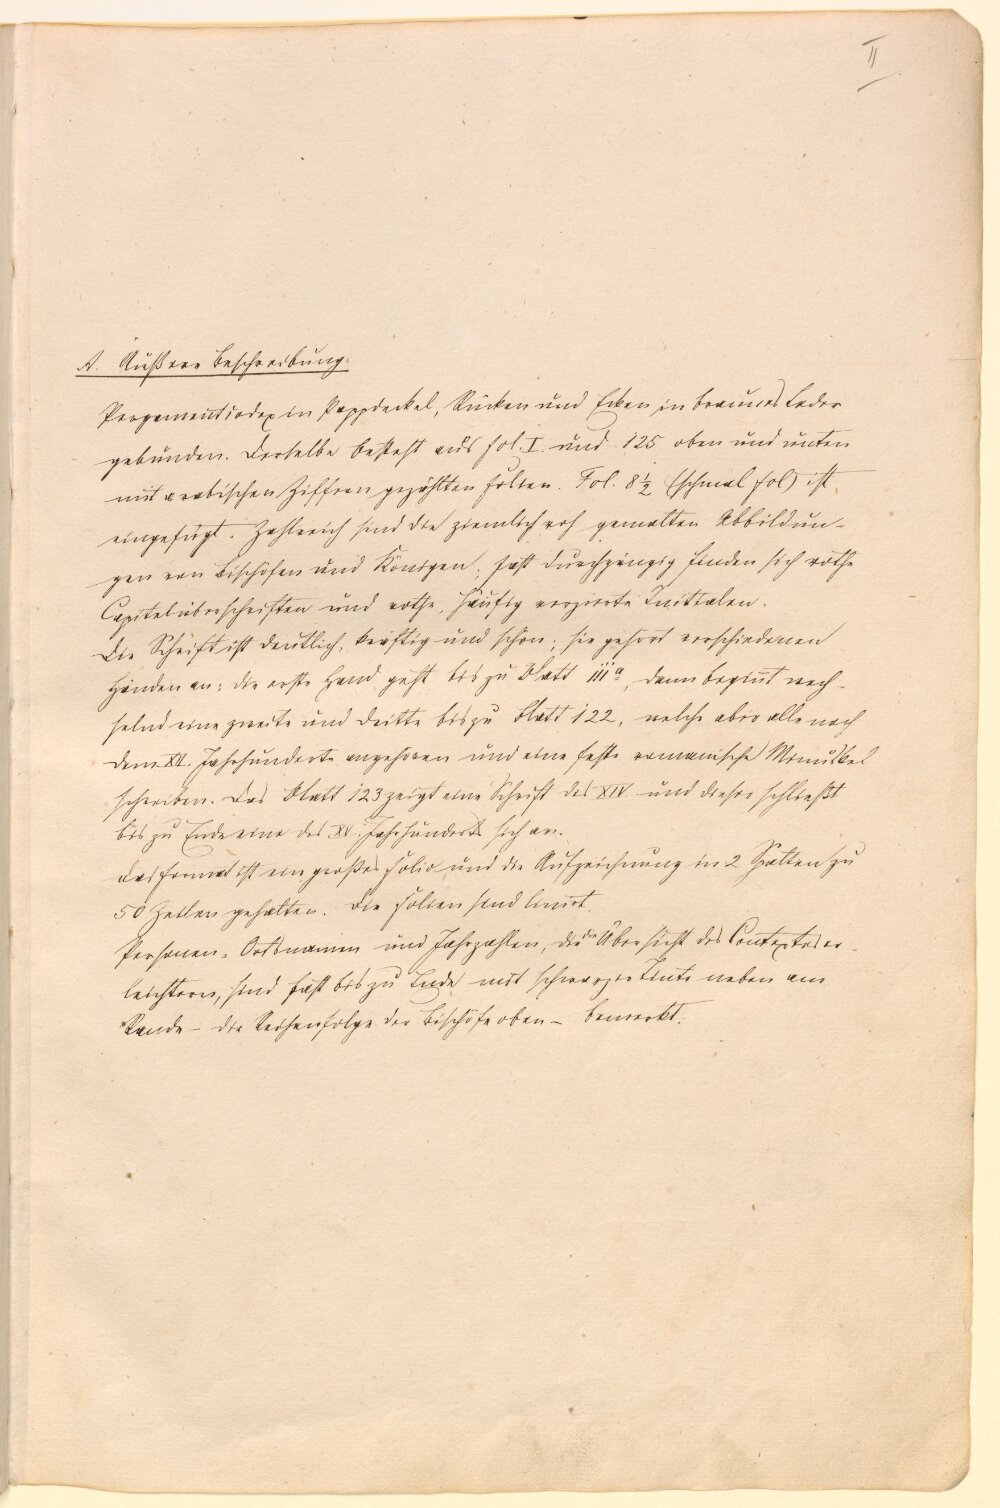 II
A. Äußere Beschreibung.
Pergamentcodex in Pappdeckel, Rücken und Ecken in braunes Leder
gebunden. Derselbe besteht aus fol. I. und 125 oben und unten
mit arabischen Ziffren gezählten Folien. Fol. 8½ (schmal fol) ist
eingefügt. Zahlreich sind die ziemlich roh gemalten Abbildun-
gen von Bischöfen und Königen; fast durchgängig finden sich rothe
Capitelüberschriften und rothe, häufig verzierte Initialen.
Die Schrift ist deutlich, kräftig und schön; sie gehört verschiedenen
Händen an: die erste Hand geht bis zu Blatt 111a, dann begint wech-
selnd eine zweite und dritte bis zu Blatt 122, welche aber alle noch
dem XII. Jahrhunderte angehören und eine feste romanische Minuskel
schreiben. Das Blatt 123 zeigt eine Schrift des XIV. und dieser schließt
bis zu Ende eine des XV. Jahrhunderts sich an.
Das Format ist ein großes Folio und die Aufzeichnung in 2 Spalten zu
50 Zeilen gehalten. Die Folien sind linirt.
Personen-, Ortsnamen und Jahrzahlen, die die Übersicht des Contextes er-
leichtern, sind fast bis zu Ende mit schwarzer Tinte neben am
Rande – die Reihenfolge der Bischöfe oben – bemerkt.